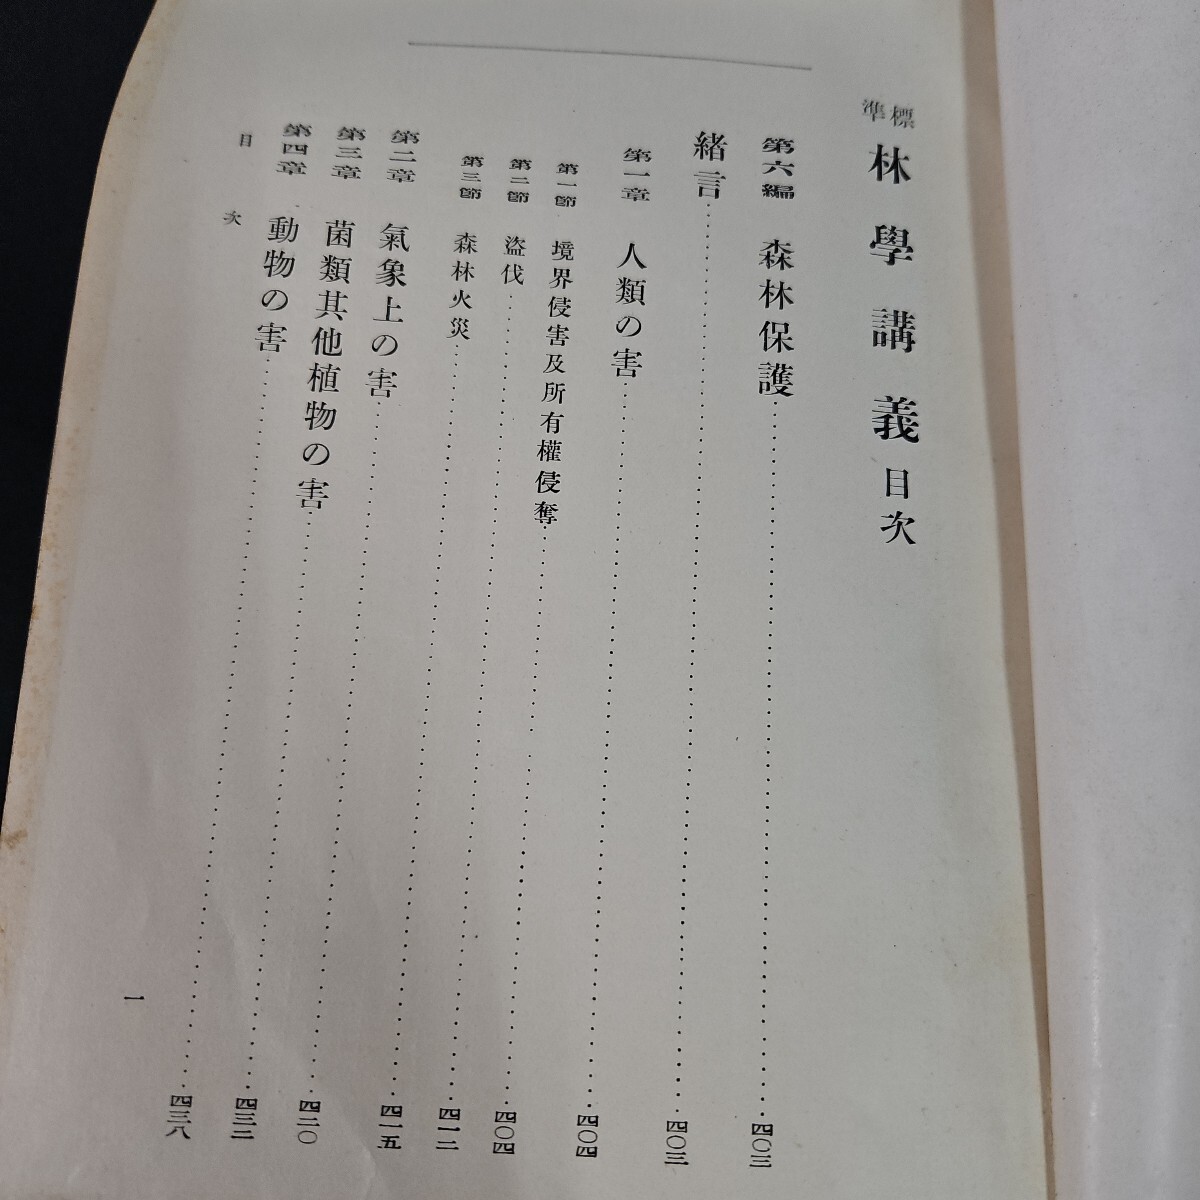 標準 林學講義目次
第六編 森林保護 四〇三
緒言 四〇三
第一章 人類の害 四〇四
第一節 境界侵害及所有權侵奪 四〇四
第二節 盜伐 四一二
第三節 森林火災 四一五
第二章 氣象上の害 四二〇
第三章 菌類其他植物の害 四三二
第四章 動物の害 四三八
目次
一